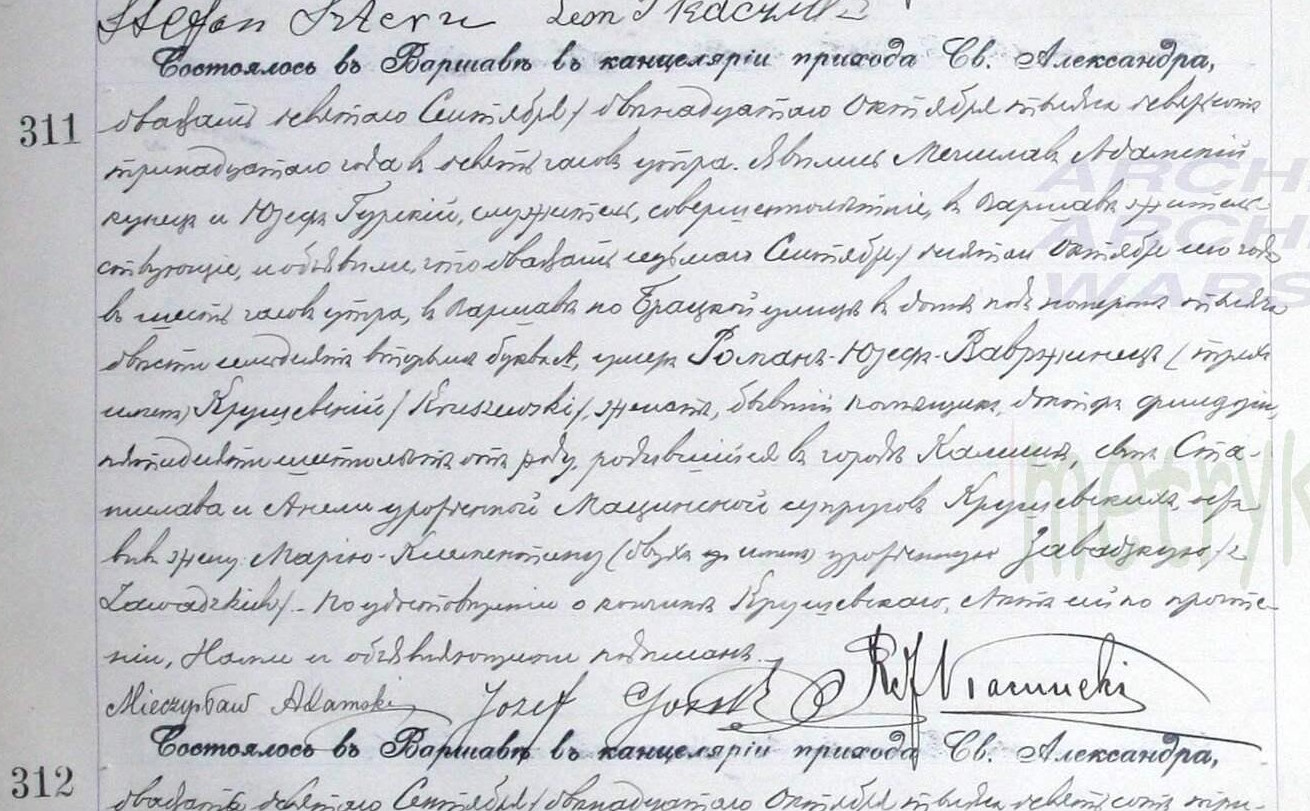 Stefan
Leon
Состоялось въ Варшавѣ въ канцеляріи прихода Св. Александра,
311
двадцать девятаго Сентября / двѣнадцатаго Октября тысяча девятьсотъ
тринадцатаго года въ девять часовъ утра. Явились Мечиславъ Адамскій
купецъ и Юзефъ Гурскій, служитель, совершеннолѣтніе, въ Варшавѣ житель-
ствующіе, и объявили, что двадцать седьмаго Сентября / десятаго Октября сего года
въ шесть часовъ утра, въ Варшавѣ по Брацкой улицѣ въ домѣ подъ номеромъ тысяча
двѣсти семьдесятъ вторымъ буква А, умеръ Романъ-Юзефъ-Вавржинецъ (трехъ
именъ) Крушевскій / Kruszewski /, женатъ, бывшій помѣщикъ, докторъ философіи,
пятидесяти шестилѣтъ отъ роду, родившійся въ городѣ Калишѣ, сынъ Ста-
нислава и Анели урожденной Мацинской супруговъ Крушевскихъ, оста-
вивъ жену Марію-Клементину (двухъ именъ) урожденную Завадзкую / z
Zawadzkich /. По удостовѣреніи о кончинѣ Крушевскаго, Актъ сей по прочте-
ніи, Нами и объявляющими подписанъ.
Mieczysław Adamski Józef Górski
Состоялось въ Варшавѣ въ канцеляріи прихода Св. Александра,
312
двадцать девятаго Сентября / двѣнадцатаго Октября тысяча девятьсотъ три-
ARCH
ARCH
WARS
metryk